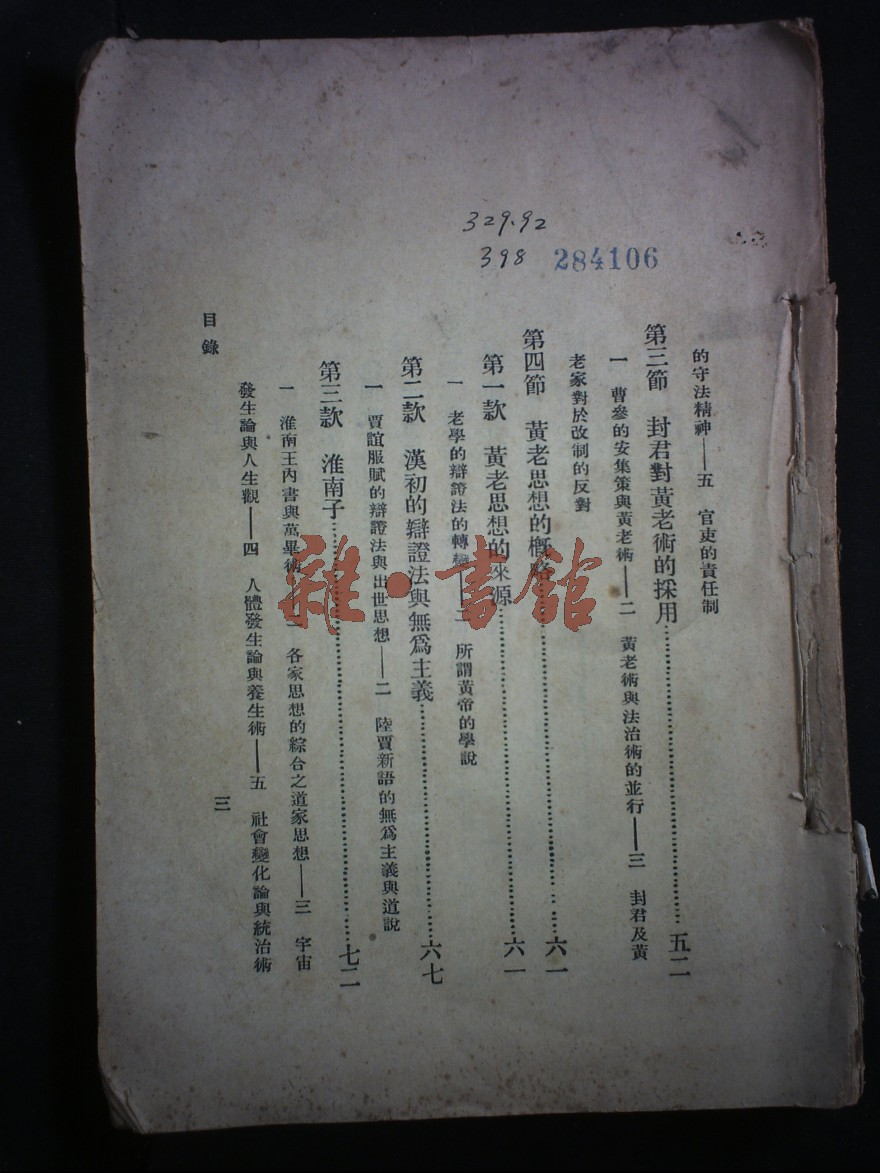 329.92
398 284106
的守法精神——五　官吏的責任制
第三節　封君對黃老術的採用……五二
一　曹參的安集策與黃老術——二　黃老術與法治術的並行——三　封君及黃
老家對於改制的反對
第四節　黃老思想的概略……六一
第一款　黃老思想的來源……六一
一　老學的辯證法的轉變——二　所謂黃帝的學說
第二款　漢初的辯證法與無爲主義……六七
一　賈誼服賦的辯證法與出世思想——二　陸賈新語的無爲主義與道說
第三款　淮南子……七二
一　淮南王內書與萬畢術——二　各家思想的綜合之道家思想——三　宇宙
發生論與人生觀——四　人體發生論與養生術——五　社會變化論與統治術
目錄
三
雜·書館